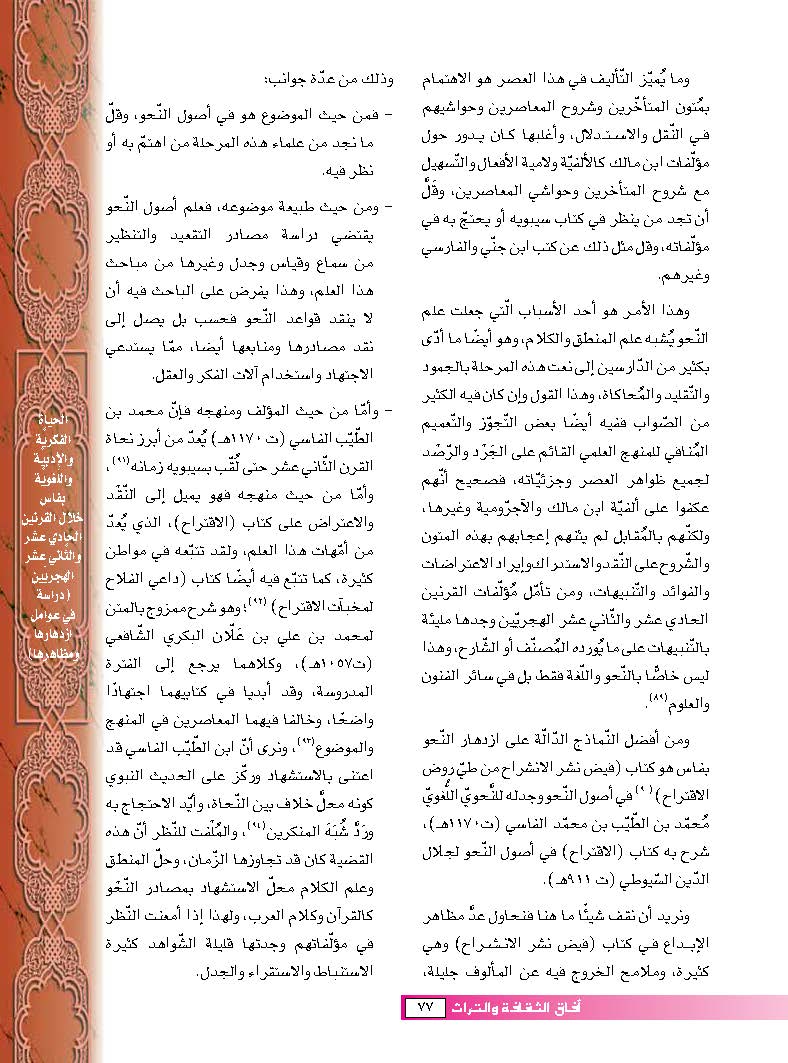 وما يُميّز التّأليف في هذا العصر هو الاهتمام
بمُتون المتأخّرين وشروح المعاصرين وحواشيهم
في النّقل والاستدلال، وأغلبها كان يدور حول
مؤلّفات ابن مالك كالألفيّة ولامية الأفعال والتّسهيل
مع شروح المتأخرين وحواشي المعاصرين، وقَلَّ
أن تجد من ينظر في كتاب سيبويه أو يحتجّ به في
مؤلّفاته، وقل مثل ذلك عن كتب ابن جنّي والفارسي
وغيرهم.
وهذا الأمر هو أحد الأسباب الّتي جعلت علم
النّحو يُشبه علم المنطق والكلام، وهو أيضًا ما أدّى
بكثير من الدّارسين إلى نعت هذه المرحلة بالجمود
والتّقليد والمُحاكاة، وهذا القول وإن كان فيه الكثير
من الصّواب ففيه أيضًا بعض التّجوّز والتّعميم
المُنافي للمنهج العلمي القائم على الجَرْد والرّصْد
لجميع ظواهر العصر وجزئيّاته، فصحيح أنّهم
عكفوا على ألفيّة ابن مالك والآجرّومية وغيرها،
ولكنّهم بالمُقابل لم يثنهم إعجابهم بهذه المتون
والشّروح على النّقد والاستدراك وإيراد الاعتراضات
والفوائد والتّنبيهات، ومن تأمّل مُؤلّفات القرنين
الحادي عشر والثّاني عشر الهجريّين وجدها مليئة
بالتّنبيهات على ما يُورده المُصنّف أو الشّارح، وهذا
ليس خاصًّا بالنّحو واللّغة فقط بل في سائر الفنون
والعلوم(٨٩).
ومن أفضل النّماذج الدّالّة على ازدهار النّحو
بفاس هو كتاب (فيض نشر الانشراح من طيّ روض
الاقتراح)(٩٠) في أصول النّحو وجدله للنَّحويّ اللُّغويّ
مُحمّد بن الطّيّب بن محمّد الفاسي (ت١١٧٠هـ)،
شرح به كتاب (الاقتراح) في أصول النّحو لجلال
الدّين السّيوطي (ت ٩١١هـ).
ونريد أن نقف شيئًا ما هنا فنحاول عدَّ مظاهر
الإبداع في كتاب (فيض نشر الانشراح) وهي
كثيرة، وملامح الخروج فيه عن المألوف جليلة،
وذلك من عدّة جوانب؛
- فمن حيث الموضوع هو في أصول النّحو، وقلّ
ما نجد من علماء هذه المرحلة من اهتمّ به أو
نظر فيه.
- ومن حيث طبيعة موضوعه، فعلم أصول النّحو
يقتضي دراسة مصادر التقعيد والتنظير
من سماع وقياس وجدل وغيرها من مباحث
هذا العلم، وهذا يفرض على الباحث فيه أن
لا ينقد قواعد النّحو فحسب بل يصل إلى
نقد مصادرها ومنابعها أيضا، ممّا يستدعي
الاجتهاد واستخدام آلات الفكر والعقل.
- وأمّا من حيث المؤلف ومنهجه فإنّ محمد بن
الطّيّب الفاسي (ت ١١٧٠هـ) يُعدّ من أبرز نحاة
القرن الثّاني عشر حتى لُقّب بسيبويه زمانه(٩١)،
وأمّا من حيث منهجه فهو يميل إلى النّقْد
والاعتراض على كتاب (الاقتراح)، الذي يُعدّ
من أمّهات هذا العلم، ولقد تتبّعه في مواطن
كثيرة، كما تتبّع فيه أيضًا كتاب (داعي الفلاح
لمخبآت الاقتراح)(٩٢)؛ وهو شرح ممزوج بالمتن
لمحمد بن علي بن عَلّان البكري الشّافعي
(ت١٠٥٧هـ)، وكلاهما يرجع إلى الفترة
المدروسة، وقد أبديا في كتابيهما اجتهادًا
واضحًا، وخالفا فيهما المعاصرين في المنهج
والموضوع(٩٣)، ونرى أنّ ابن الطّيّب الفاسي قد
اعتنى بالاستشهاد وركّز على الحديث النبوي
كونه محلّ خلاف بين النّحاة، وأيّد الاحتجاج به
وردَّ شُبَهَ المنكرين(٩٤)، والمُلْفت للنّظر أنّ هذه
القضية كان قد تجاوزها الزّمان، وحلّ المنطق
وعلم الكلام محلّ الاستشهاد بمصادر النّحو
كالقرآن وكلام العرب، ولهذا إذا أمعنت النّظر
في مؤلّفاتهم وجدتها قليلة الشّواهد كثيرة
الاستنباط والاستقراء والجدل.
الحياة
الفكرية
والأدبية
واللغوية
بفاس
خلال القرنين
الحادي عشر
والثاني عشر
الهجريين
(دراسة
في عوامل
ازدهارها
ومظاهرها)
آفاق الثقافة والتراث ٧٧